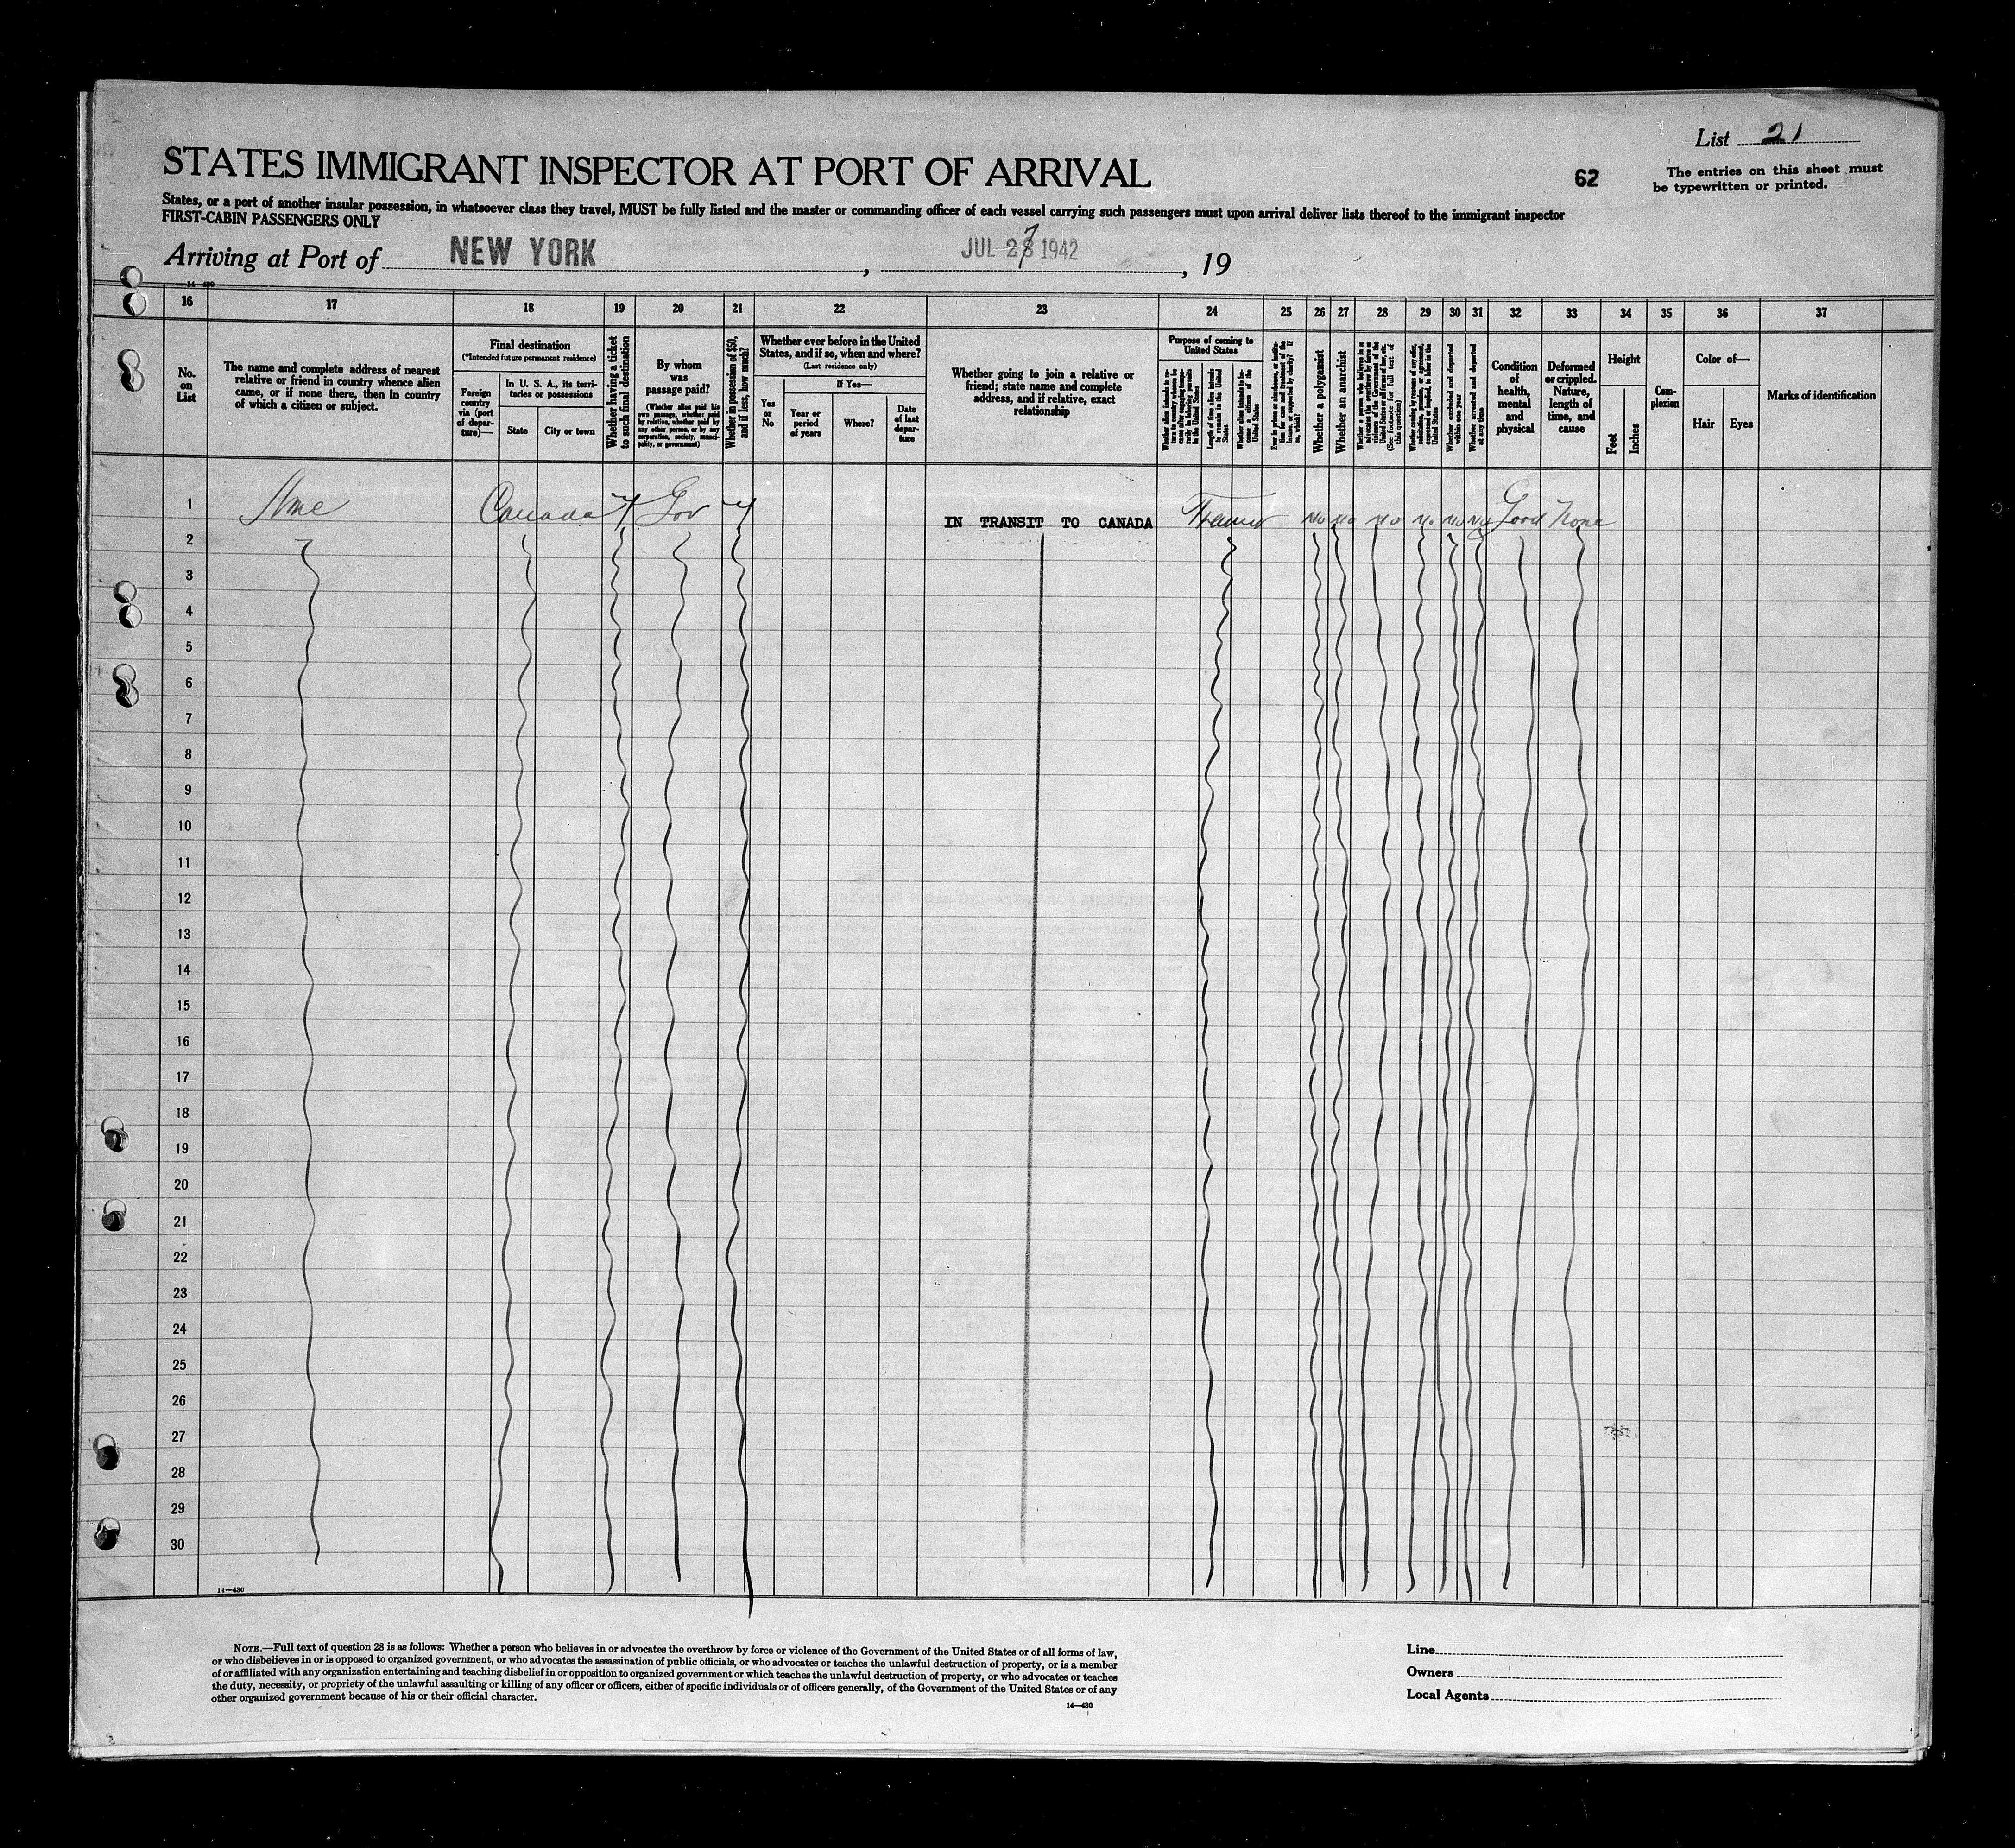 List 21
STATES IMMIGRANT INSPECTOR AT PORT OF ARRIVAL
62
The entries on this sheet must
be typewritten or printed.
States, or a port of another insular possession, in whatsoever class they travel, MUST be fully listed and the master or commanding officer of each vessel carrying such passengers must upon arrival deliver lists thereof to the immigrant inspector
FIRST-CABIN PASSENGERS ONLY
Arriving at Port of NEW YORK, JUL 27 1942, 19
14—430
16 17 18 19 20 21 22 23 24 25 26 27 28 29 30 31 32 33 34 35 36 37
No.
on
List
The name and complete address of nearest
relative or friend in country whence alien
came, or if none there, then in country
of which a citizen or subject.
Final destination
(*Intended future permanent residence)
Foreign
country
via (port
of depar-
ture)—
In U. S. A., its terri-
tories or possessions
State
City or town
Whether having a ticket
to such final destination
By whom
was
passage paid?
(Whether alien paid his
own passage, whether paid
by relative, whether paid by
any other person, or by any
corporation, society, munici-
pality, or government)
Whether in possession of $50,
and if less, how much?
Whether ever before in the United
States, and if so, when and where?
(Last residence only)
Yes
or
No
If Yes—
Year or
period
of years
Where?
Date
of last
depar-
ture
Whether going to join a relative or
friend; state name and complete
address, and if relative, exact
relationship
Purpose of coming to
United States
Whether alien intends to re-
turn to country whence he
came after engaging tempo-
rarily in laboring pursuits
in the United States
Length of time alien intends
to remain in the United
States
Whether alien intends to be-
come a citizen of the
United States
Ever in prison or almshouse, or institu-
tion for care and treatment of the
insane, or supported by charity? If
so, which?
Whether a polygamist
Whether an anarchist
Whether a person who believes in or
advocates the overthrow by force or
violence of the Government of the
United States or all forms of law, etc.
(See footnote for full text of
this question)
Whether coming by reasons of any offer,
solicitation, promise, or agreement,
expressed or implied, to labor in the
United States
Whether excluded and deported
within one year
Whether arrested and deported
at any time
Condition
of
health,
mental
and
physical
Deformed
or crippled.
Nature,
length of
time, and
cause
Height
Feet
Inches
Com-
plexion
Color of—
Hair
Eyes
Marks of identification
1 None Canada Y Gov Y IN TRANSIT TO CANADA No No No No No No Good None
2
3
4
5
6
7
8
9
10
11
12
13
14
15
16
17
18
19
20
21
22
23
24
25
26
27
28
29
30
14—430
NOTE.—Full text of question 28 is as follows: Whether a person who believes in or advocates the overthrow by force or violence of the Government of the United States or of all forms of law,
or who disbelieves in or is opposed to organized government, or who advocates the assassination of public officials, or who advocates or teaches the unlawful destruction of property, or is a member
of or affiliated with any organization entertaining and teaching disbelief in or opposition to organized government or which teaches the unlawful destruction of property, or who advocates or teaches
the duty, necessity, or propriety of the unlawful assaulting or killing of any officer or officers, either of specific individuals or of officers generally, of the Government of the United States or of any
other organized government because of his or their official character.
14—430
Line
Owners
Local Agents